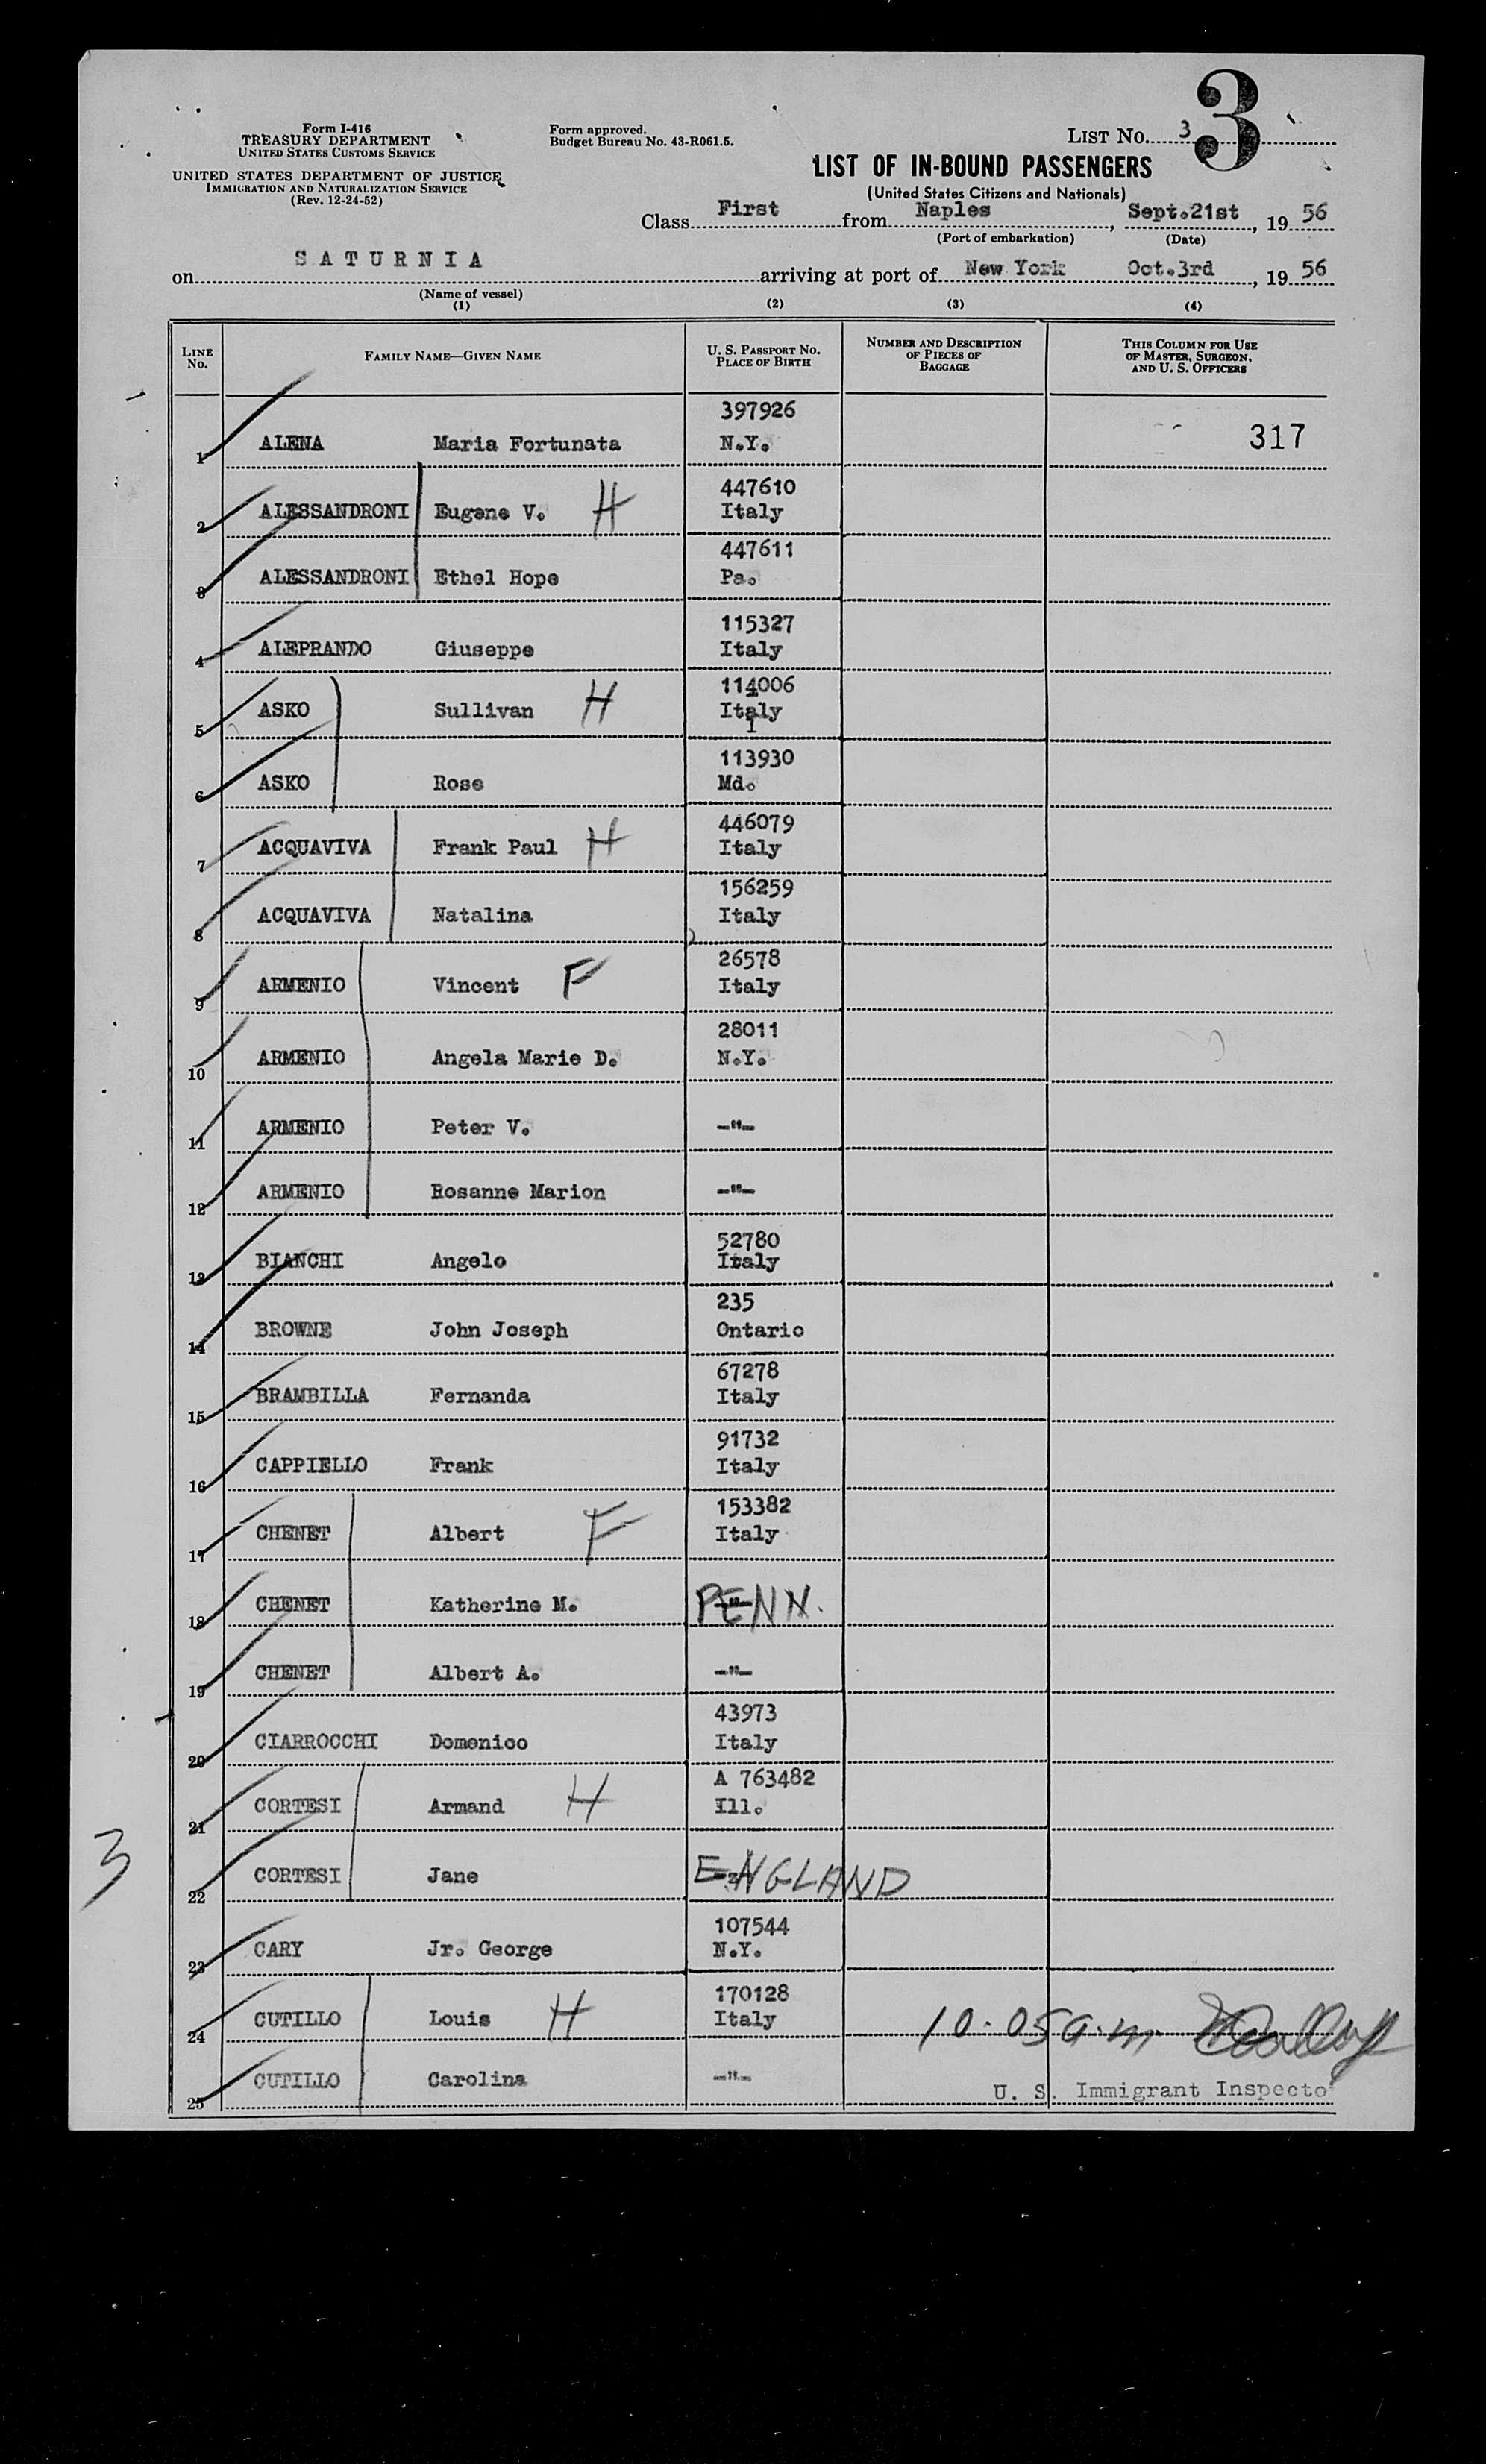 3
Form I-416
TREASURY DEPARTMENT
UNITED STATES CUSTOMS SERVICE
UNITED STATES DEPARTMENT OF JUSTICE
IMMIGRATION AND NATURALIZATION SERVICE
(Rev. 12-24-52)
Form approved.
Budget Bureau No. 43-R061.5.
LIST NO. 3
LIST OF IN-BOUND PASSENGERS
(United States Citizens and Nationals)
Class First from Naples, Sept.21st, 19 56
(Port of embarkation) (Date)
on SATURNIA arriving at port of New York Oct.3rd, 19 56
(Name of vessel)
(1) (2) (3) (4)
LINE No. FAMILY NAME—GIVEN NAME U. S. PASSPORT NO. PLACE OF BIRTH NUMBER AND DESCRIPTION OF PIECES OF BAGGAGE THIS COLUMN FOR USE OF MASTER, SURGEON, AND U. S. OFFICERS
397926
1 ALENA Maria Fortunata N.Y. 317
447610
2 ALESSANDRONI Eugene V. H Italy
447611
3 ALESSANDRONI Ethel Hope Pa.
115327
4 ALEPRANDO Giuseppe Italy
114006
5 ASKO Sullivan H Italy
113930
6 ASKO Rose Md.
446079
7 ACQUAVIVA Frank Paul H Italy
156259
8 ACQUAVIVA Natalina Italy
26578
9 ARMENIO Vincent F Italy
28011
10 ARMENIO Angela Marie D. N.Y.
11 ARMENIO Peter V. -"-
12 ARMENIO Rosanne Marion -"-
52780
13 BIANCHI Angelo Italy
235
14 BROWNE John Joseph Ontario
67278
15 BRAMBILLA Fernanda Italy
91732
16 CAPPIELLO Frank Italy
153382
17 CHENET Albert F Italy
18 CHENET Katherine M. PENN.
19 CHENET Albert A. -"-
43973
20 CIARROCCHI Domenico Italy
A 763482
21 CORTESI Armand H Ill.
22 CORTESI Jane ENGLAND
3
107544
23 CARY Jr. George N.Y.
170128
24 CUTILLO Louis H Italy 10.05 a.m.
25 CUTILLO Carolina -"- U. S. Immigrant Inspecto